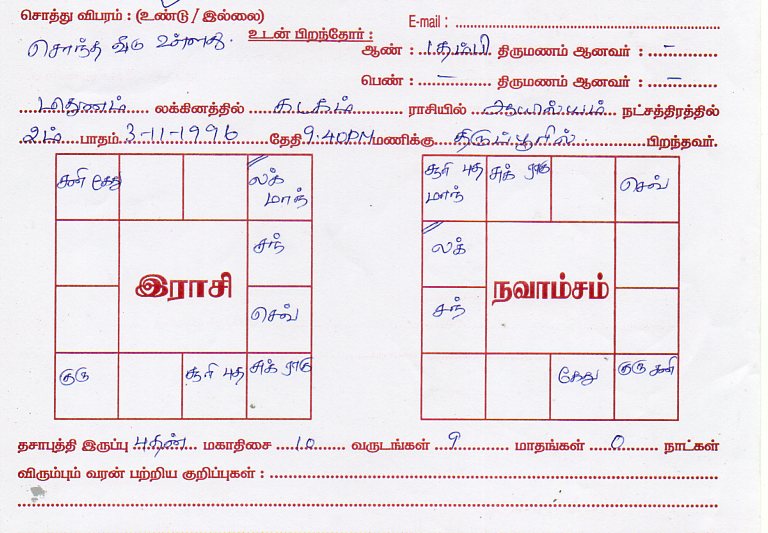 சொத்து விபரம் : (உண்டு / இல்லை)
E-mail :
சொந்த வீடு உள்ளது.
உடன் பிறந்தோர் :
ஆண் : 1 தம்பி திருமணம் ஆனவர் : –
பெண் : – திருமணம் ஆனவர் : –
மிதுனம் லக்கினத்தில் கடகம் ராசியில் ஆயில்யம் நட்சத்திரத்தில்
2ம் பாதம் 3-11-1996 தேதி 9.40PM மணிக்கு திருப்பூரில் பிறந்தவர்.
சனி கேது
லக்
மாந்
சந்
இராசி
செவ்
குரு
சூரி புத
சுக் ராகு
சூரி புத
மாந்
சுக் ராகு
செவ்
லக்
நவாம்சம்
சந்
கேது
குரு சனி
தசாபுத்தி இருப்பு புதன் மகாதிசை 10 வருடங்கள் 9 மாதங்கள் 0 நாட்கள்
விரும்பும் வரன் பற்றிய குறிப்புகள் :